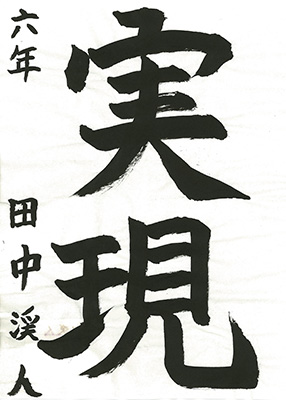 実現
六年 田中渓人